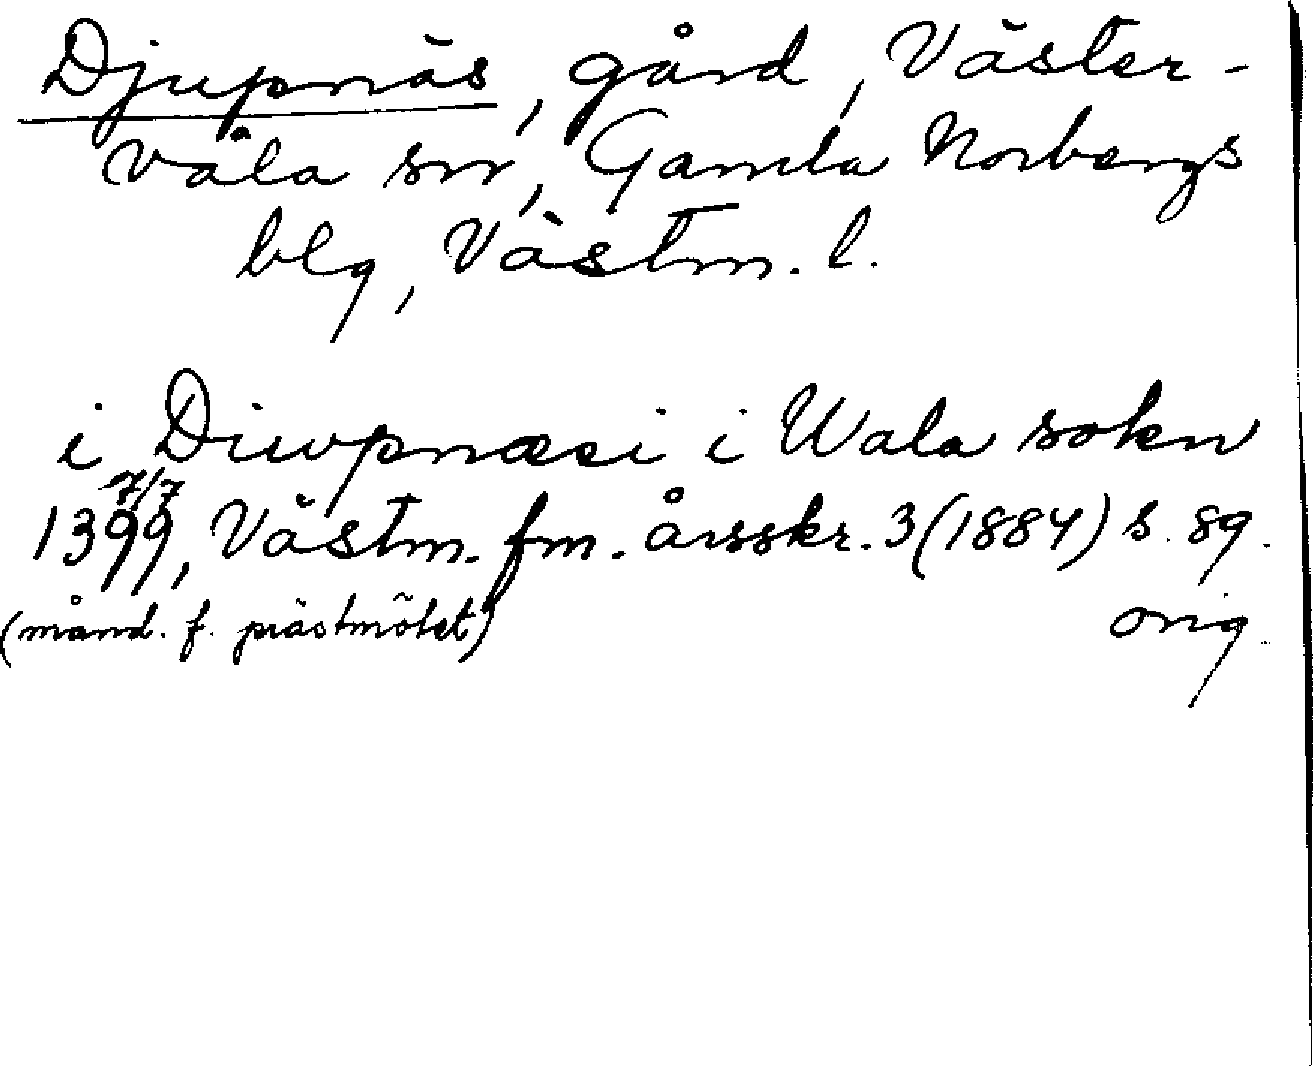 Djupnäs, gård, Väster-
våla sn, Gamla Norbergs
blg, Västm. l.
i Diwpnæsi i Wala sokn
7/7
1399, Västm. fm. årsskr. 3 (1884) s. 89.
(månd. f. prästmötet) orig.